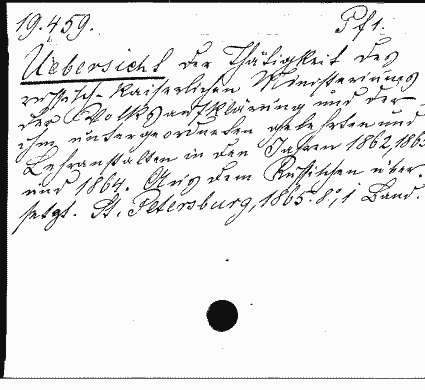 19.459. Pf1.
Uebersicht der Thätigkeit des
russisch-kaiserlichen Ministeriums
der Volksaufklärung und der
ihm untergeordneten gelehrten und
Lehranstalten in den Jahren 1862, 1863
und 1864. Aus dem Russischen über-
setzt. St. Petersburg, 1865. 8°, 1 Band.